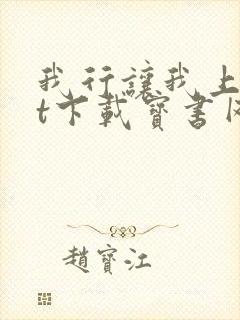 我行讓我上
t下載寶書网
趙寶江